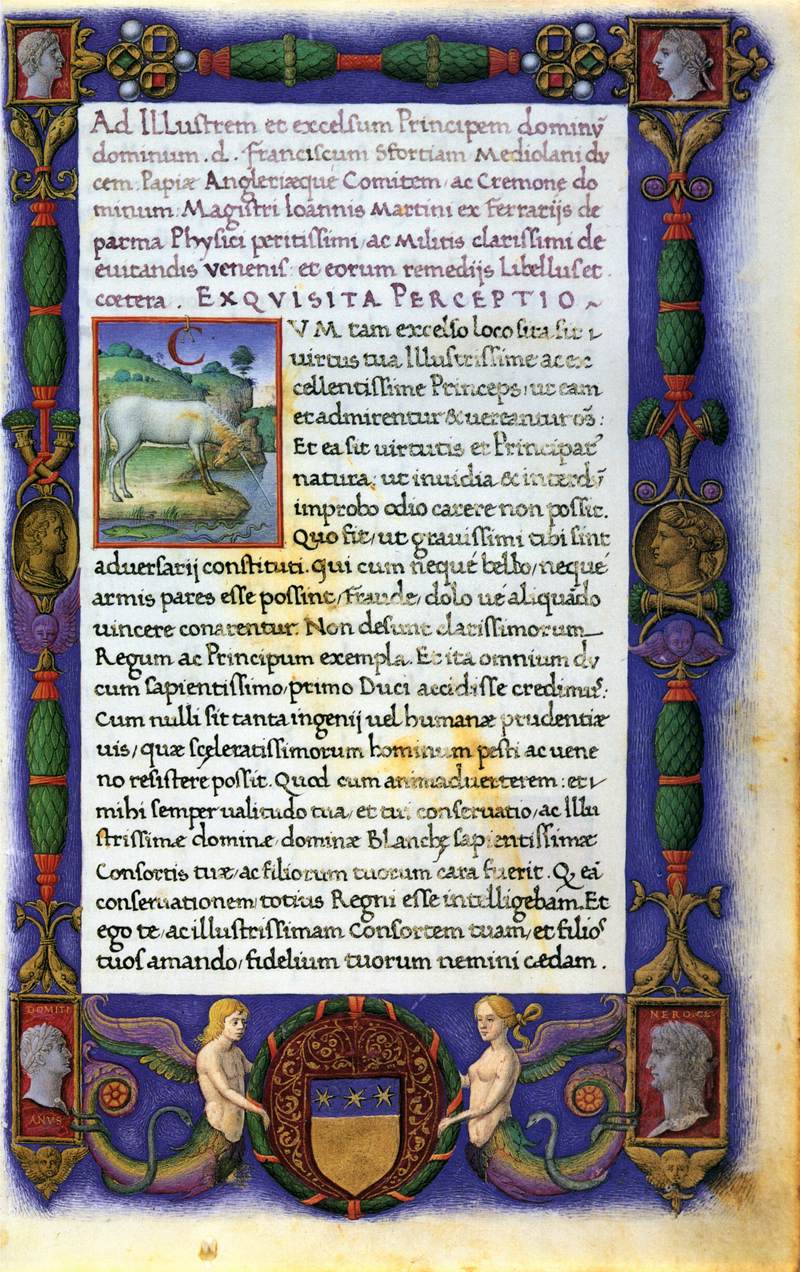 Ad Illustrem et excelsum Principem dominũ
dominum .d. Franciscum Sfortiam Mediolani du
cem: Papiæ Angleriæque Comitem, ac Cremone do
minum: Magistri Ioannis Martini ex Ferrarijs de
parma Physici peritissimi, ac Militis clarissimi de
euitandis venenis: et eorum remedijs Libellus et
cœtera . EXQVISITA PERCEPTIO ~
C
VM tam excelso loco sita sit
uirtus tua Illustrissime ac ex
cellentissime Princeps, ut eam
et admirentur & uereantur oẽs:
Et ea sit uirtutis et Principat'
natura: ut inuidia & interdũ
improbo odio carere non possit.
Quo fit, ut grauissimi tibi sint
aduersarij constituti. qui cum neque bello, neque
armis pares esse possint, fraude, dolo ue aliquãdo
uincere conarentur. Non desunt clarissimorum
Regum ac Principum exempla. Et ita omnium du
cum sapientissimo, primo Duci accidisse credimus:
Cum nulli sit tanta ingenij uel humanæ prudentiæ
uis, quæ sceleratissimorum hominum pesti ac uene
no resistere possit. Quod cum animaduerterem: et
mihi semper ualitudo tua, et tui conseruatio, ac Illu
strissimæ dominæ, dominæ Blanchę sapientissimæ
Consortis tuæ, ac filiorum tuorum cara fuerit. Q eã
conseruationem totius Regni esse intelligebam. Et
ego te, ac illustrissimam Consortem tuam, et filios
tuos amando, fidelium tuorum nemini cædam .
DOMITI
ANVS
NERO.CL.